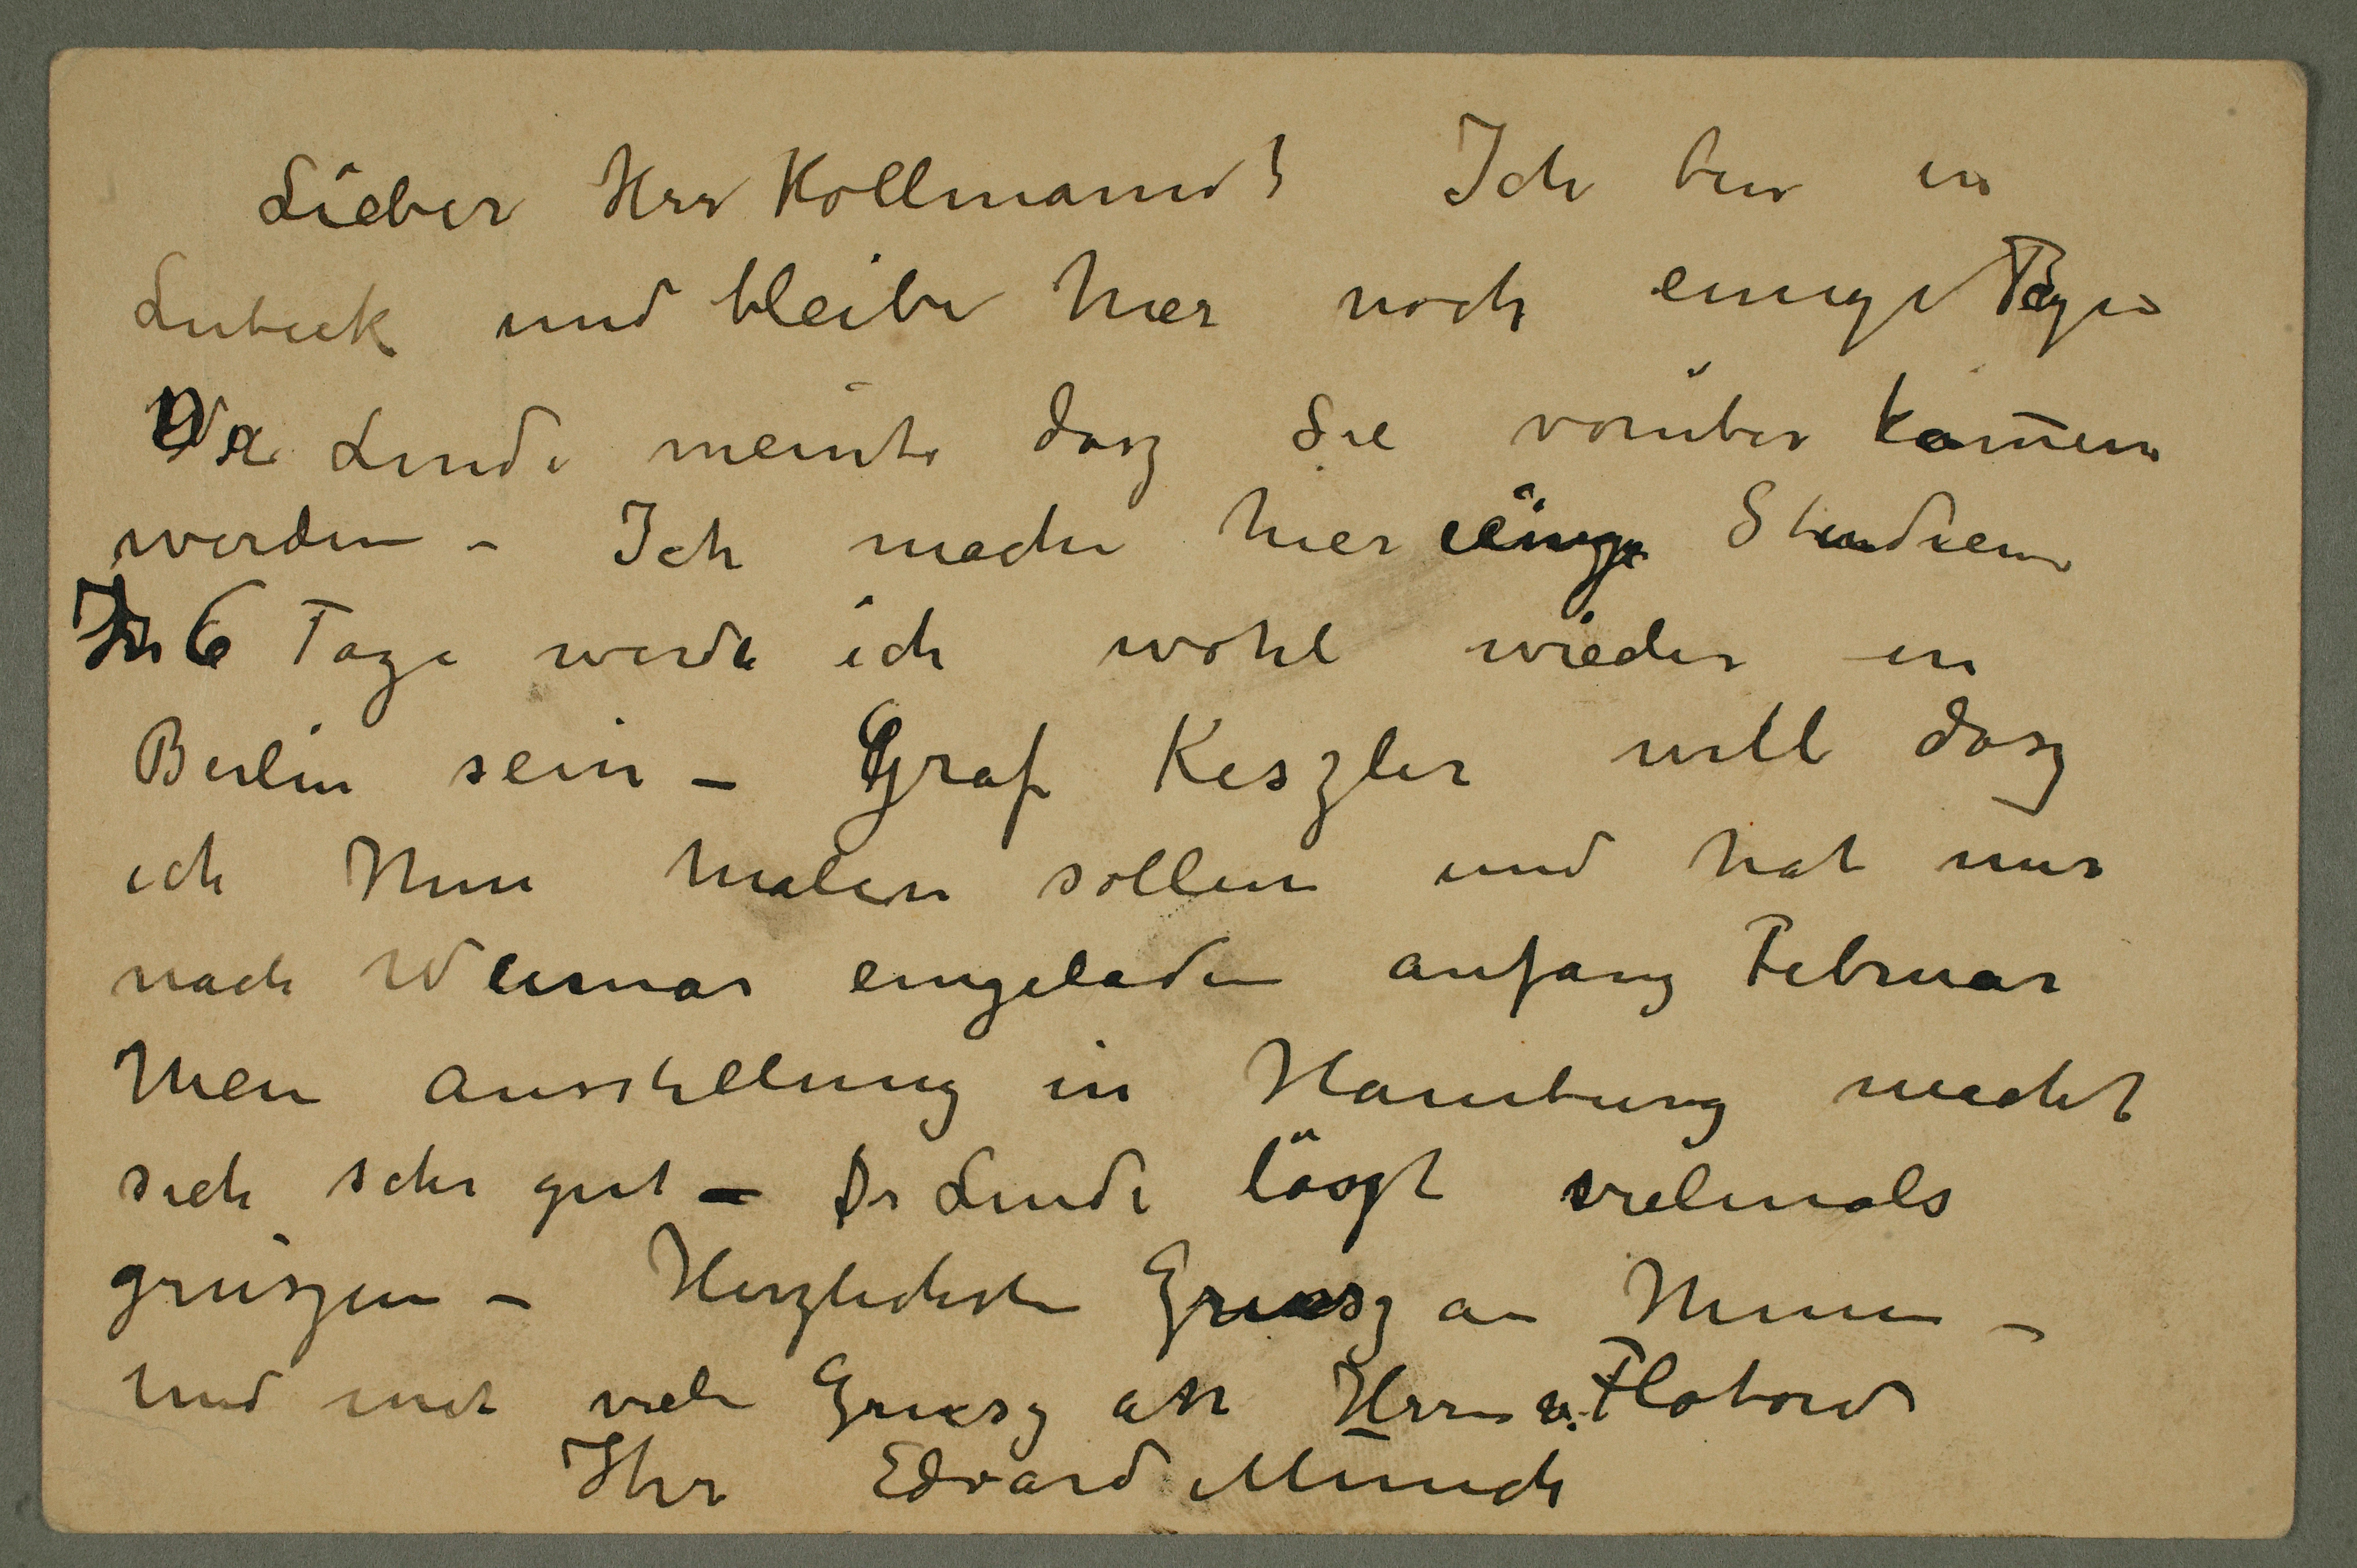 Lieber Herr Kollmann! Ich bin in
Lubeck und bleibe hier noch einige Tage
Dr Linde meinte dasz Sie vorüber kom̄en
werden – Ich mache hier einge Studien
In 6 Tage werde ich wohl wieder in
Berlin sein – Graf Keszler will dasz
ich Ihm malen sollen und hat mir
nach Weimar eingeladen anfang Februar
Mein ausstellung in Hamburg macht
sich sehr gut – Dr Linde läszt vielmals
grüszen – Herzlichste Grusz an Ihnen –
und mit viele Grusz an Herrn v. Flotow
Ihr Edvard Munch